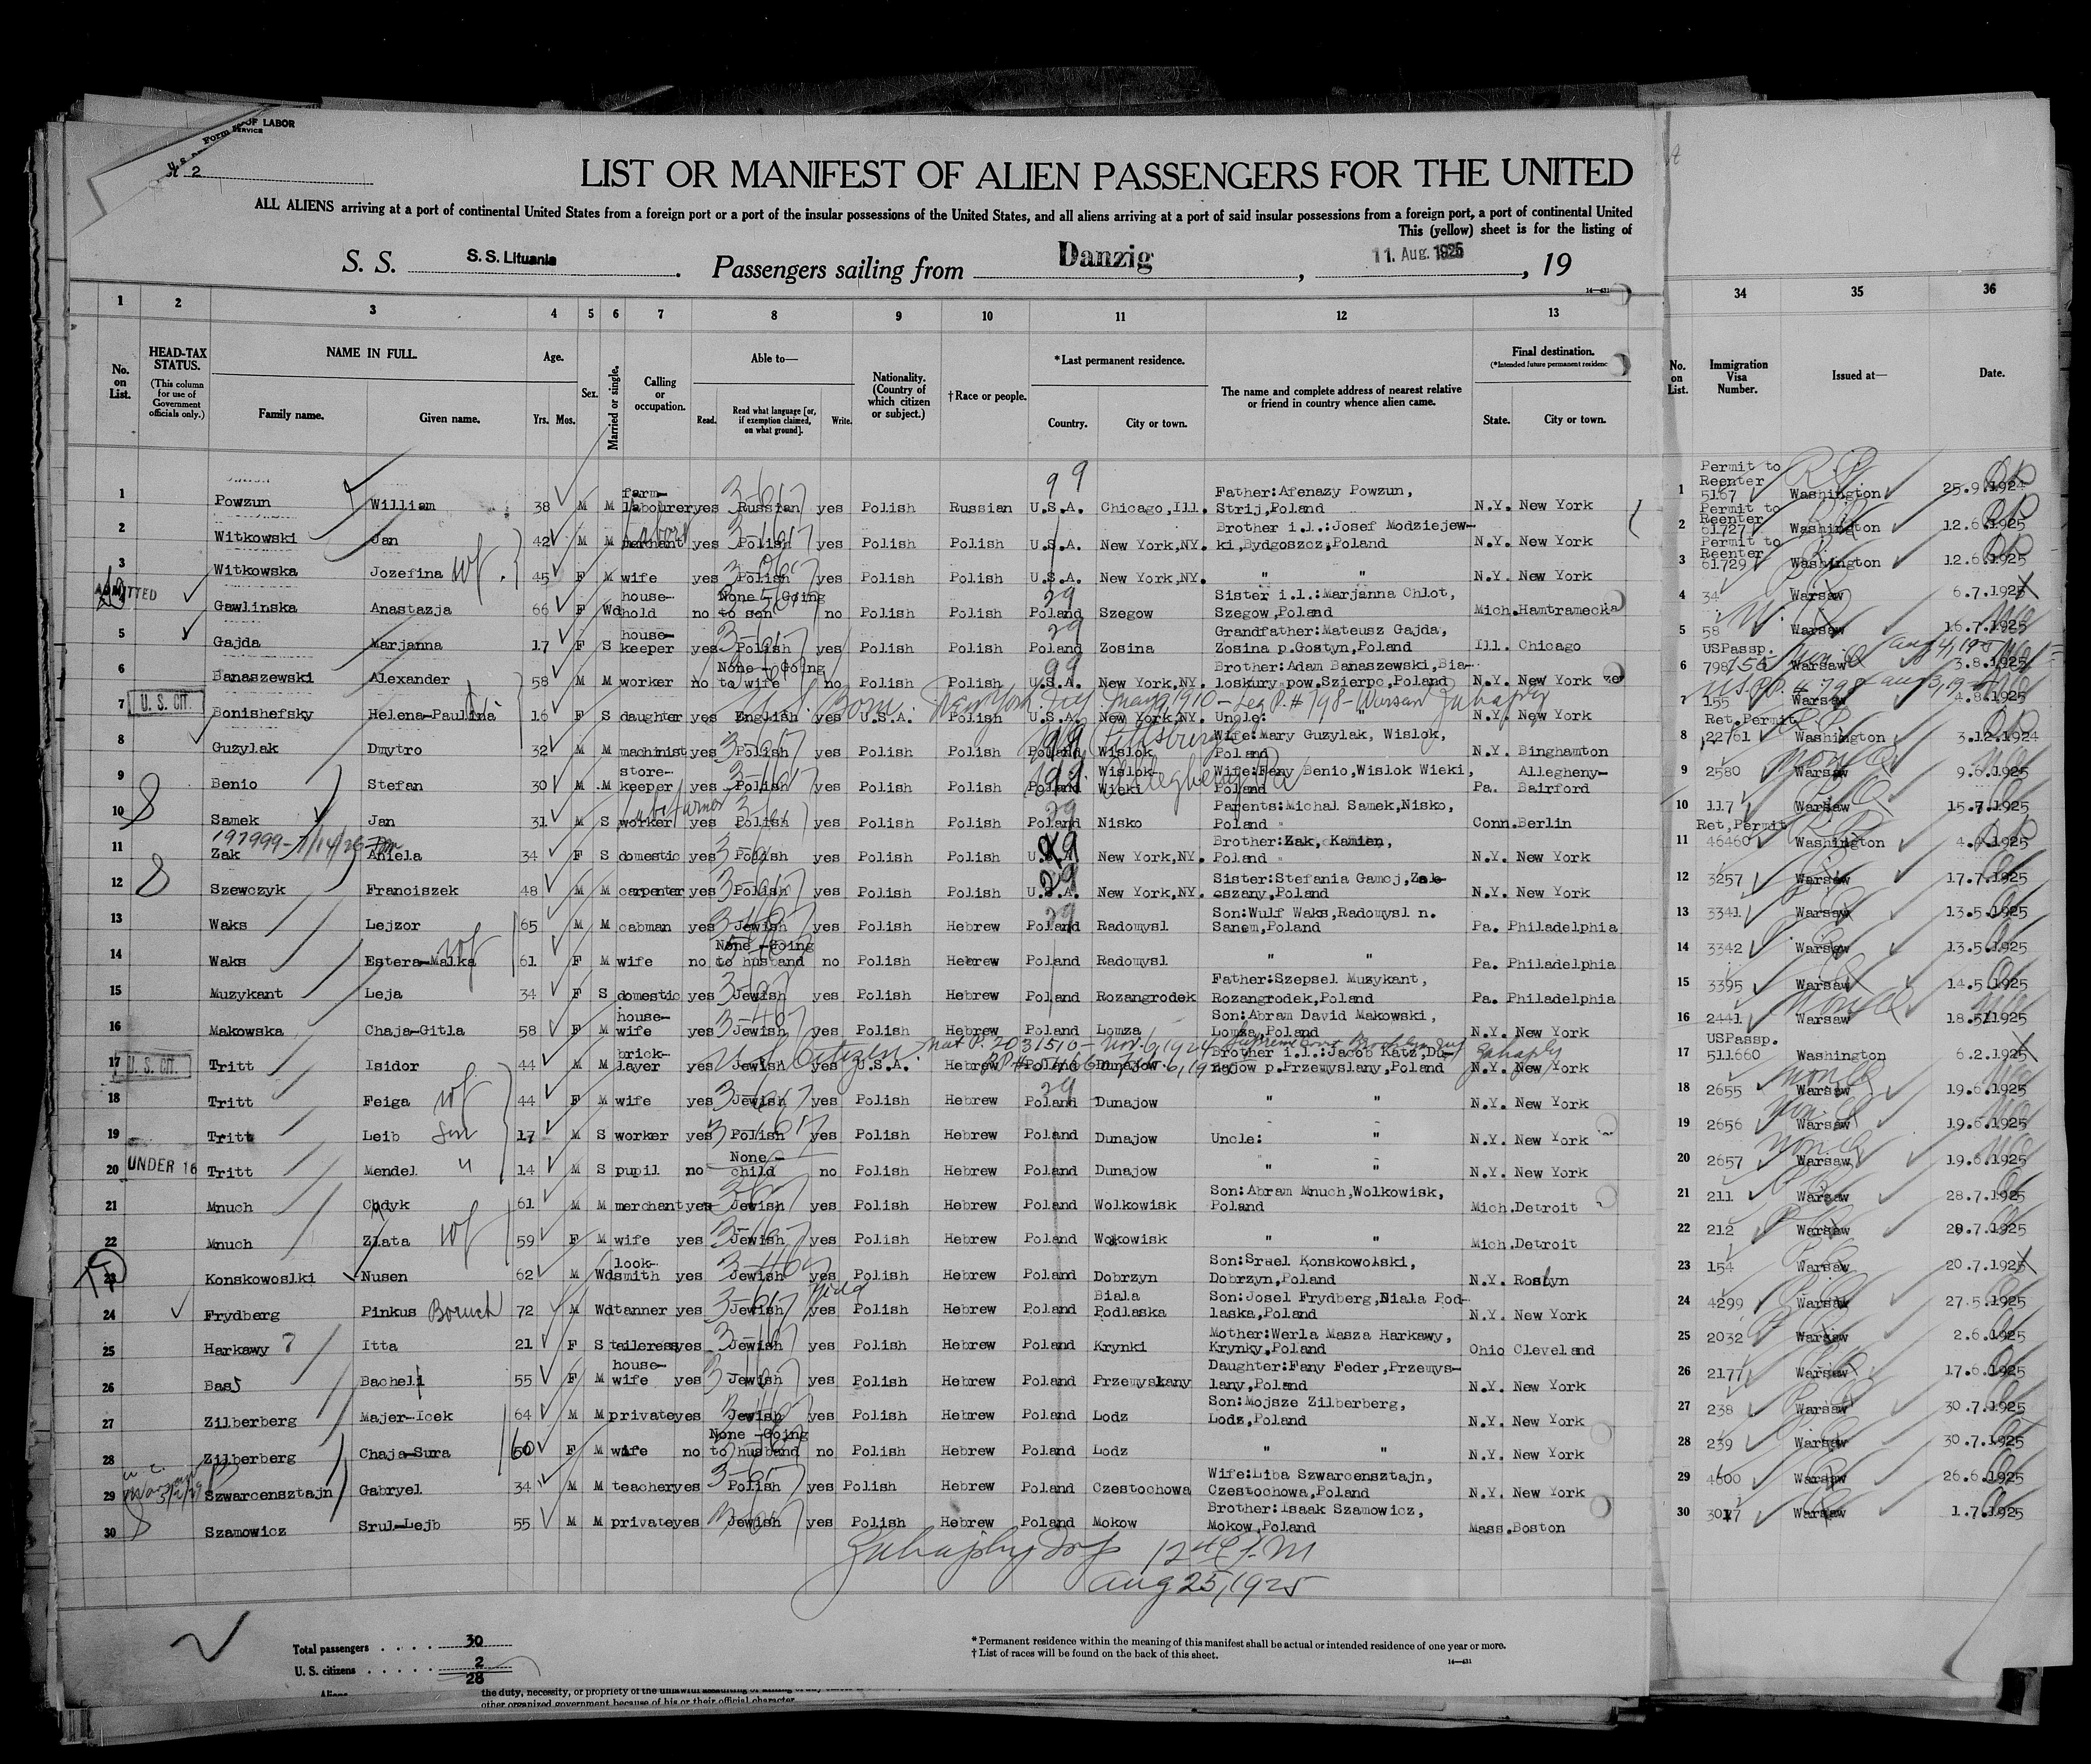 OF LABOR
Form
SERVICE
2
LIST OR MANIFEST OF ALIEN PASSENGERS FOR THE UNITED
ALL ALIENS arriving at a port of continental United States from a foreign port or a port of the insular possessions of the United States, and all aliens arriving at a port of said insular possessions from a foreign port, a port of continental United
This (yellow) sheet is for the listing of
S. S. S.S. Lituania. Passengers sailing from Danzig, 11. Aug. 1925, 19
14—431
1 2 3 4 5 6 7 8 9 10 11 12 13 34 35 36
No. on List. HEAD-TAX STATUS. (This column for use of Government officials only.) NAME IN FULL. Family name. Given name. Age. Yrs. Mos. Sex. Married or single. Calling or occupation. Able to— Read. Read what language [or, if exemption claimed, on what ground]. Write. Nationality. (Country of which citizen or subject.) †Race or people. *Last permanent residence. Country. City or town. The name and complete address of nearest relative or friend in country whence alien came. Final destination. (*Intended future permanent residence State. City or town. No. on List. Immigration Visa Number. Issued at— Date.
1 Powzun William 38 M M farm-labourer yes Russian yes Polish Russian U.S.A. Chicago,Ill. Father:Afenazy Powzun, Strij,Poland N.Y. New York 1 Permit to Reenter 5167 Washington 25.9.1924
2 Witkowski Jan 42 M M merchant yes Polish yes Polish Polish U.S.A. New York,NY. Brother i.l.:Josef Modziejew-ki,Bydgoszcz,Poland N.Y. New York 2 Permit to Reenter 61727 Washington 12.6.1925
3 Witkowska Jozefina wf. 45 F M wife yes Polish yes Polish Polish U.S.A. New York,NY. " " N.Y. New York 3 Permit to Reenter 61729 Washington 12.6.1925
4 ADMITTED Gawlinska Anastazja 66 F Wd house-hold no None - Going to son no Polish Polish Poland Szegow Sister i.l.:Marjanna Chlot, Szegow,Poland Mich.Hamtramecka 4 34 Warsaw 6.7.1925
5 Gajda Marjanna 17 F S house-keeper yes Polish yes Polish Polish Poland Zosina Grandfather:Mateusz Gajda, Zosina p.Gostyn,Poland Ill. Chicago 5 58 Warsaw 16.7.1925
6 Banaszewski Alexander 58 M M worker no None - Going to wife no Polish Polish U.S.A. New York,NY. Brother:Adam Banaszewski,Bia-loskury pow,Szierpc,Poland N.Y. New York 6 USPassp. 798 Warsaw 3.8.1925
7 U. S. CIT. Bonishefsky Helena-Paulina 16 F S daughter yes English yes U.S.A. Polish U.S.A. New York,NY. Uncle: " N.Y. New York 7 155 Warsaw 4.8.1925
8 Guzylak Dmytro 32 M M machinist yes Polish yes Polish Polish Poland Wislok Wife:Mary Guzylak, Wislok, Poland N.Y. Binghamton 8 Ret.Permit 22761 Washington 3.12.1924
9 Benio Stefan 30 M M store-keeper yes Polish yes Polish Polish Poland Wislok-Wieki Wife:Feny Benio,Wislok Wieki, Poland Pa. Allegheny-Bairford 9 2580 Warsaw 9.6.1925
10 Samek Jan 31 M S worker yes Polish yes Polish Polish Poland Nisko Parents:Michal Samek,Nisko, Poland Conn.Berlin 10 117 Warsaw 15.7.1925
11 Zak Aniela 34 F S domestic yes Polish yes Polish Polish U.S.A. New York,NY. Brother:Zak, Kamien, Poland N.Y. New York 11 Ret,Permit 46460 Washington 4.4.1925
12 Szewczyk Franciszek 48 M M carpenter yes Polish yes Polish Polish U.S.A. New York,NY. Sister:Stefania Gamcj,Zale-oszany,Poland N.Y. New York 12 3257 Warsaw 17.7.1925
13 Waks Lejzor 65 M M cabman yes Jewish yes Polish Hebrew Poland Radomysl Son:Wulf Waks,Radomysl n. Sanem,Poland Pa. Philadelphia 13 3341 Warsaw 13.5.1925
14 Waks Estera-Malka wf 61 F M wife no None -Going to husband no Polish Hebrew Poland Radomysl " " Pa. Philadelphia 14 3342 Warsaw 13.5.1925
15 Muzykant Leja 34 F S domestic yes Jewish yes Polish Hebrew Poland Rozangrodek Father:Szepsel Muzykant, Rozangrodek,Poland Pa. Philadelphia 15 3395 Warsaw 14.5.1925
16 Makowska Chaja-Gitla 58 F M house-wife yes Jewish yes Polish Hebrew Poland Lomza Son:Abram David Makowski, Lomza,Poland N.Y. New York 16 2441 Warsaw 18.5.1925
17 U. S. CIT. Tritt Isidor 44 M M brick-layer yes Jewish yes U.S.A. Hebrew Poland Dunajow Brother i.l.:Jacob Katz,Du-najow p.Przemyslany,Poland N.Y. New York 17 USPassp. 511660 Washington 6.2.1925
18 Tritt Feiga wf 44 F M wife yes Jewish yes Polish Hebrew Poland Dunajow " " N.Y. New York 18 2655 Warsaw 19.6.1925
19 Tritt Leib Son 17 M S worker yes Polish yes Polish Hebrew Poland Dunajow Uncle: " N.Y. New York 19 2656 Warsaw 19.6.1925
20 UNDER 16 Tritt Mendel " 14 M S pupil no None - child no Polish Hebrew Poland Dunajow " " N.Y. New York 20 2657 Warsaw 19.6.1925
21 Mnuch Chdyk 61 M M merchant yes Jewish yes Polish Hebrew Poland Wolkowisk Son:Abram Mnuch,Wolkowisk, Poland Mich.Detroit 21 211 Warsaw 28.7.1925
22 Mnuch Zlata wf 59 F M wife yes Jewish yes Polish Hebrew Poland Wokowisk " " Mich.Detroit 22 212 Warsaw 28.7.1925
23 Konskowoslki Nusen 62 M Wd look-smith yes Jewish yes Polish Hebrew Poland Dobrzyn Son:Srael Konskowolski, Dobrzyn,Poland N.Y. Roslyn 23 154 Warsaw 20.7.1925
24 Frydberg Pinkus Boruch 72 M Wd tanner yes Jewish yes Polish Hebrew Poland Biala Podlaska Son:Josel Frydberg,Biala Pod-laska,Poland N.Y. New York 24 4299 Warsaw 27.5.1925
25 Harkawy Itta 21 F S teileress yes Jewish yes Polish Hebrew Poland Krynki Mother:Werla Masza Harkawy, Krynky,Poland Ohio Cleveland 25 2032 Warsaw 2.6.1925
26 Bas Bacheli 55 F M house-wife yes Jewish yes Polish Hebrew Poland Przemyskany Daughter:Fany Feder,Przemys-lany,Poland N.Y. New York 26 2177 Warsaw 17.6.1925
27 Zilberberg Majer-Icek 64 M M private yes Jewish yes Polish Hebrew Poland Lodz Son:Mojsze Zilberberg, Lodz,Poland N.Y. New York 27 238 Warsaw 30.7.1925
28 Zilberberg Chaja-Sura 60 F M wife no None -Going to husband no Polish Hebrew Poland Lodz " " N.Y. New York 28 239 Warsaw 30.7.1925
29 Szwarcensztajn Gabryel 34 M M teacher yes Polish yes Polish Hebrew Poland Czestochowa Wife:Liba Szwarcensztajn, Czestochowa,Poland N.Y. New York 29 4600 Warsaw 26.6.1925
30 Szamowicz Srul-Lejb 55 M M private yes Jewish yes Polish Hebrew Poland Mokow Brother:Isaak Szamowicz, Mokow,Poland Mass.Boston 30 3017 Warsaw 1.7.1925
Aug 25, 1925
Total passengers . . . . . 30
U. S. citizens . . . . . . 2
28
Aliens
* Permanent residence within the meaning of this manifest shall be actual or intended residence of one year or more.
† List of races will be found on the back of this sheet.
14—431
other organized government because of his or their official character